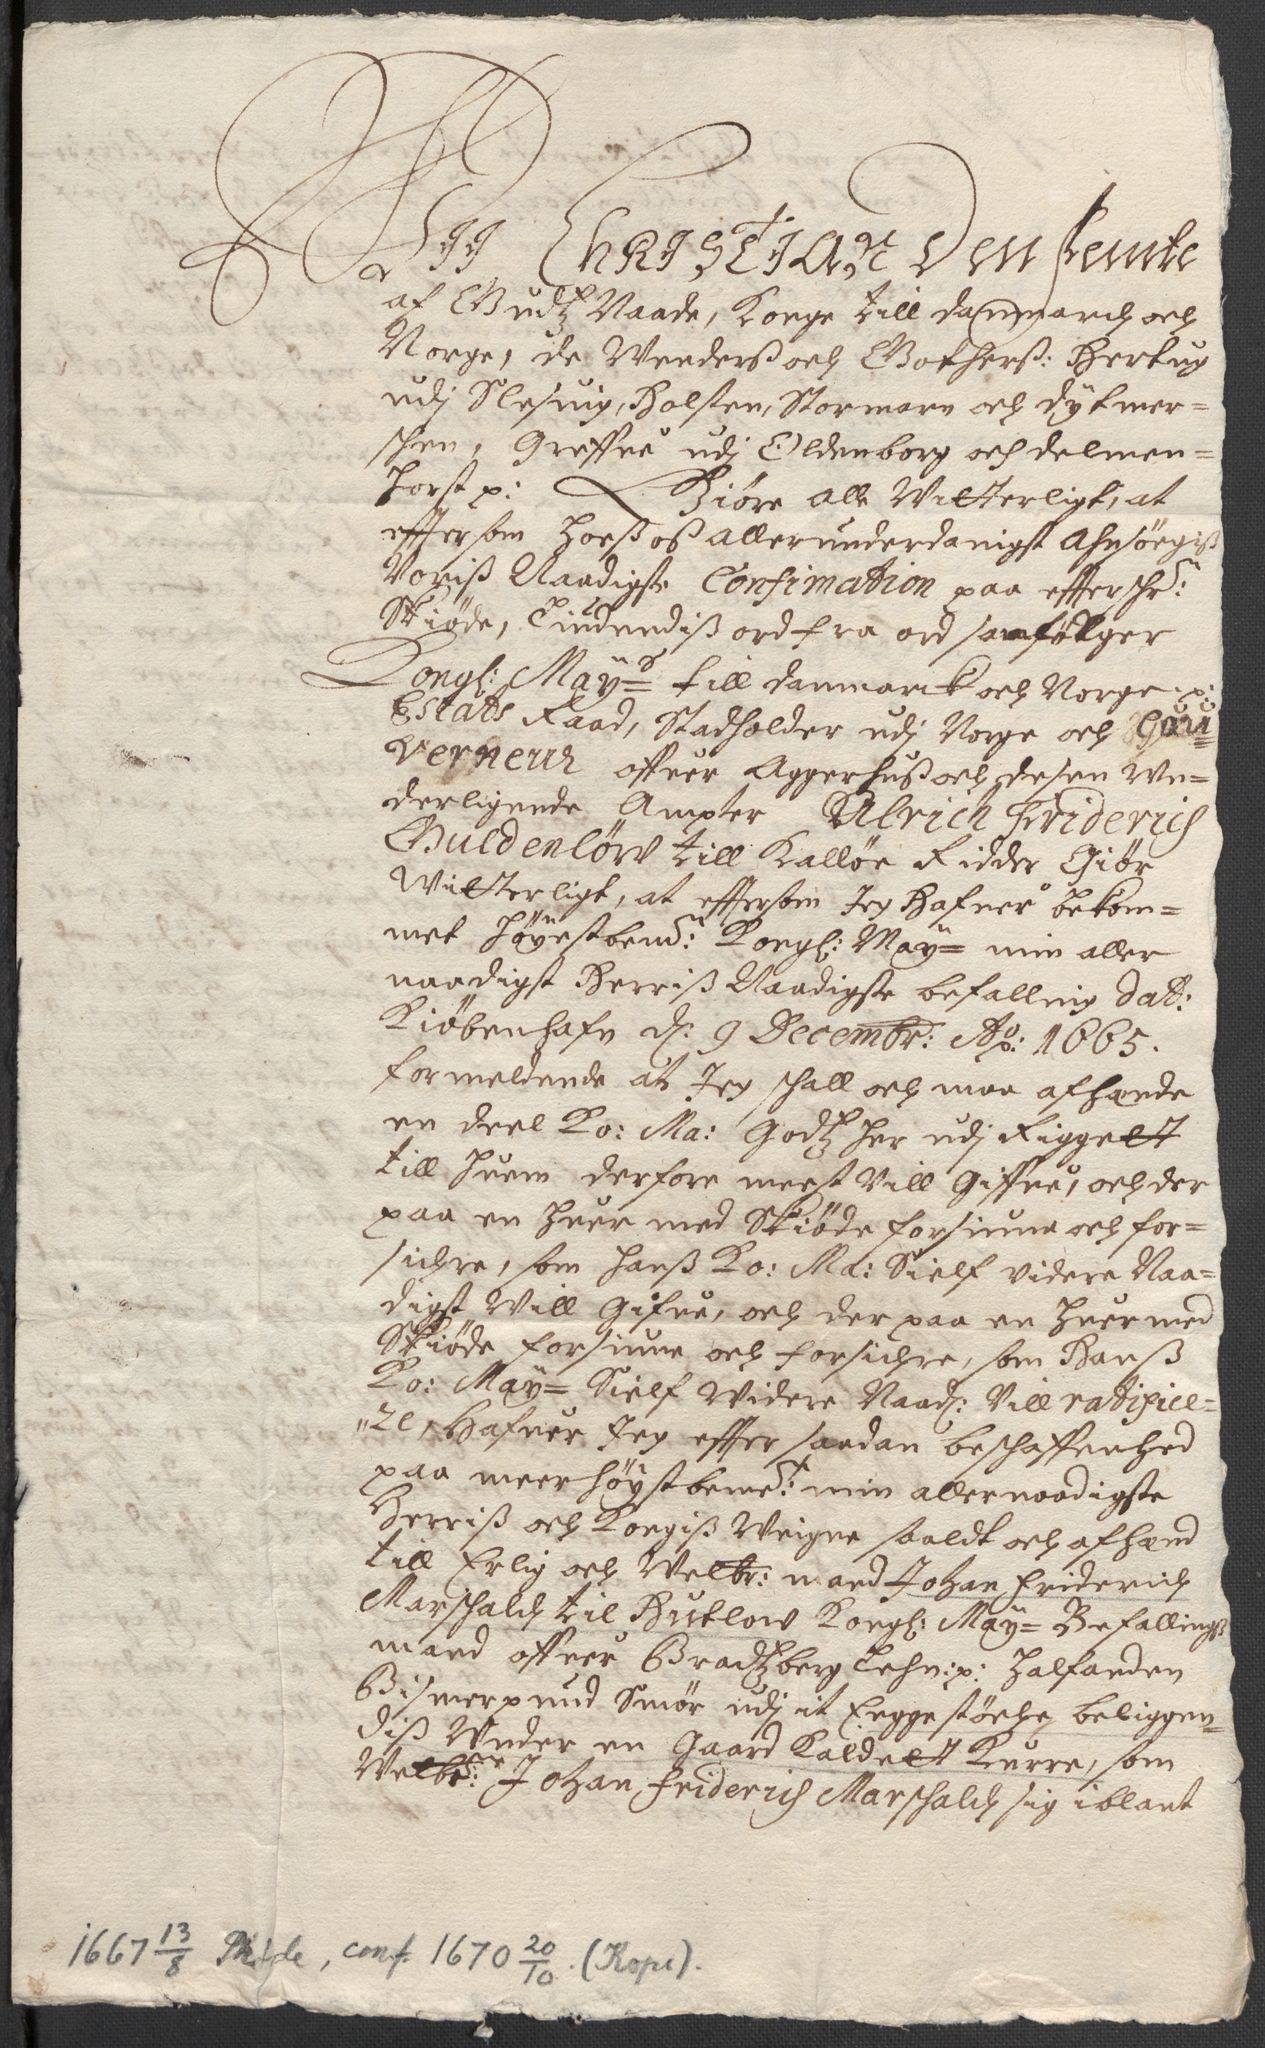 Wii Christian Den Femte
af Gudtz Naade, Konge till danmarch och
Norge, de Wenderß och Gotherß: Hertug
udj Slesuig, Holsten, Stormarn och dytmer=
schen, Greffue udj Oldenborg och delmen=
horst p: Giöre alle Witterligt, at
effter som hoeß oß allerunderdanigst Ahnsöegiß
Voriß Naadigste Confirmation paa effterschr:ne
Skiöde, Liudendiß ord fra ord saa følger
Kongl: May:s till danmarck och Norge p:
Estats Raad, Stadholder udj Norge och Gou=
Verneur offuer Aggerhuß och desen Un=
derligende Ampter Ulrich Friderich
Guldenlöw till Kallöe Ridder Giör
Witterligt, at efftersom Jeg Hafuer bekom=
met höyestbem:te Kongl: May:= min aller
naadigst Herriß Naadigste befalling Dat:
Kiöbenhafn d: 9 Decembr: Ao: 1665.
formeldende at Jeg schall och maa afhænde
en deel Ko: Ma: Godtz her udj Riggett
till huem derfore meest Vill Giffue, och der
paa en huer med Skiöde forsiune och for=
sichre, som hanß Ko: Ma: Sielf videre Naa=
digst Will Gifue, och der paa en huer med
Skiöde forsiune och forsichre, som Hanß
Ko: May:= Sielf Widere Naad: Vill ratificee=
"re, Hafuer Jeg effter saadan beschaffenhed
paa meer höystbeme:te min allernaadigste
Herriß och Kongiß Weigne soaldt och afhænd
till Erlig och Welbr: mand Johan Friderich
Marschalch til Hutlow Kongl: May:= Befallingß
mand offuer Bradtzberg Lehn: p: halfanden
Bismerpund Smör udj it Eggestöche beliggen=
diß Under en Gaard Kaldett Kurre, som
Welbr:ne Johan Friderich Marschalch sig iblant
1667 13/8 Skjøde, conf. 1670 20/10. (Kopi).